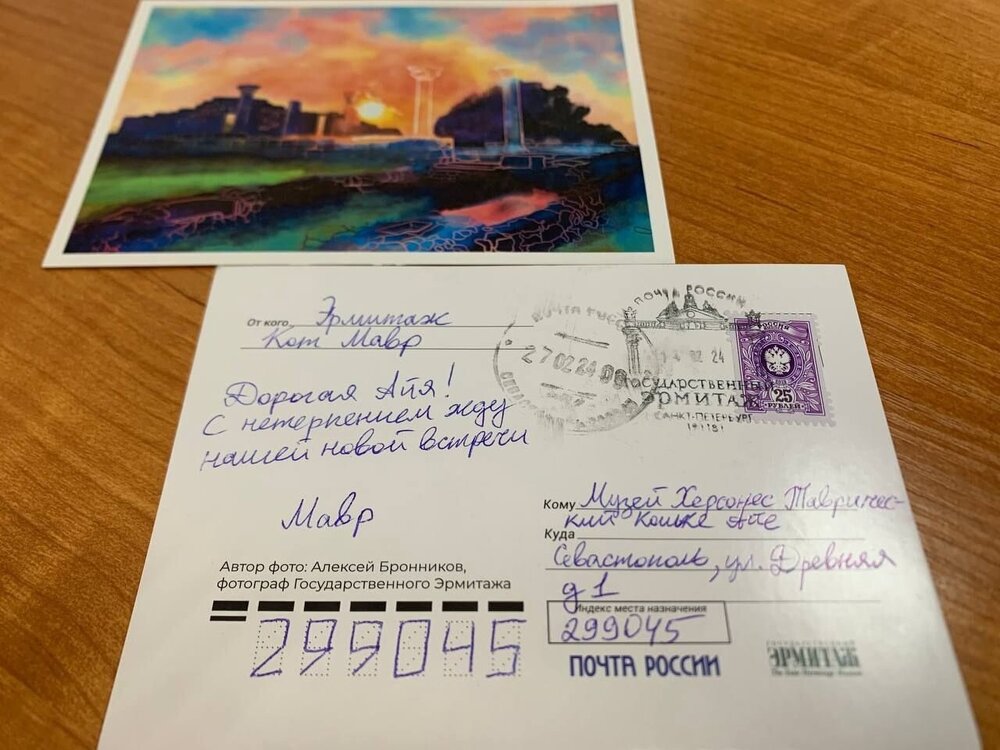 От кого Эрмитаж
Кот Мавр
Дорогая Айя!
С нетерпением жду
нашей новой встречи
Мавр
Автор фото: Алексей Бронников,
фотограф Государственного Эрмитажа
299045
ПОЧТА РОССИИ
27 02 24
ПОЧТА РОССИИ
02 24
ГОСУДАРСТВЕННЫЙ
ЭРМИТАЖ
САНКТ-ПЕТЕРБУРГ
РОССИЯ
25
РУБЛЕЙ
Кому Музей Херсонес Тавричес-
кий кошке Айе
Куда
Севастополь, ул. Древняя
д 1
Индекс места назначения
299045
ПОЧТА РОССИИ
ГОСУДАРСТВЕННЫЙ
ЭРМИТАЖ
The State Hermitage Museum